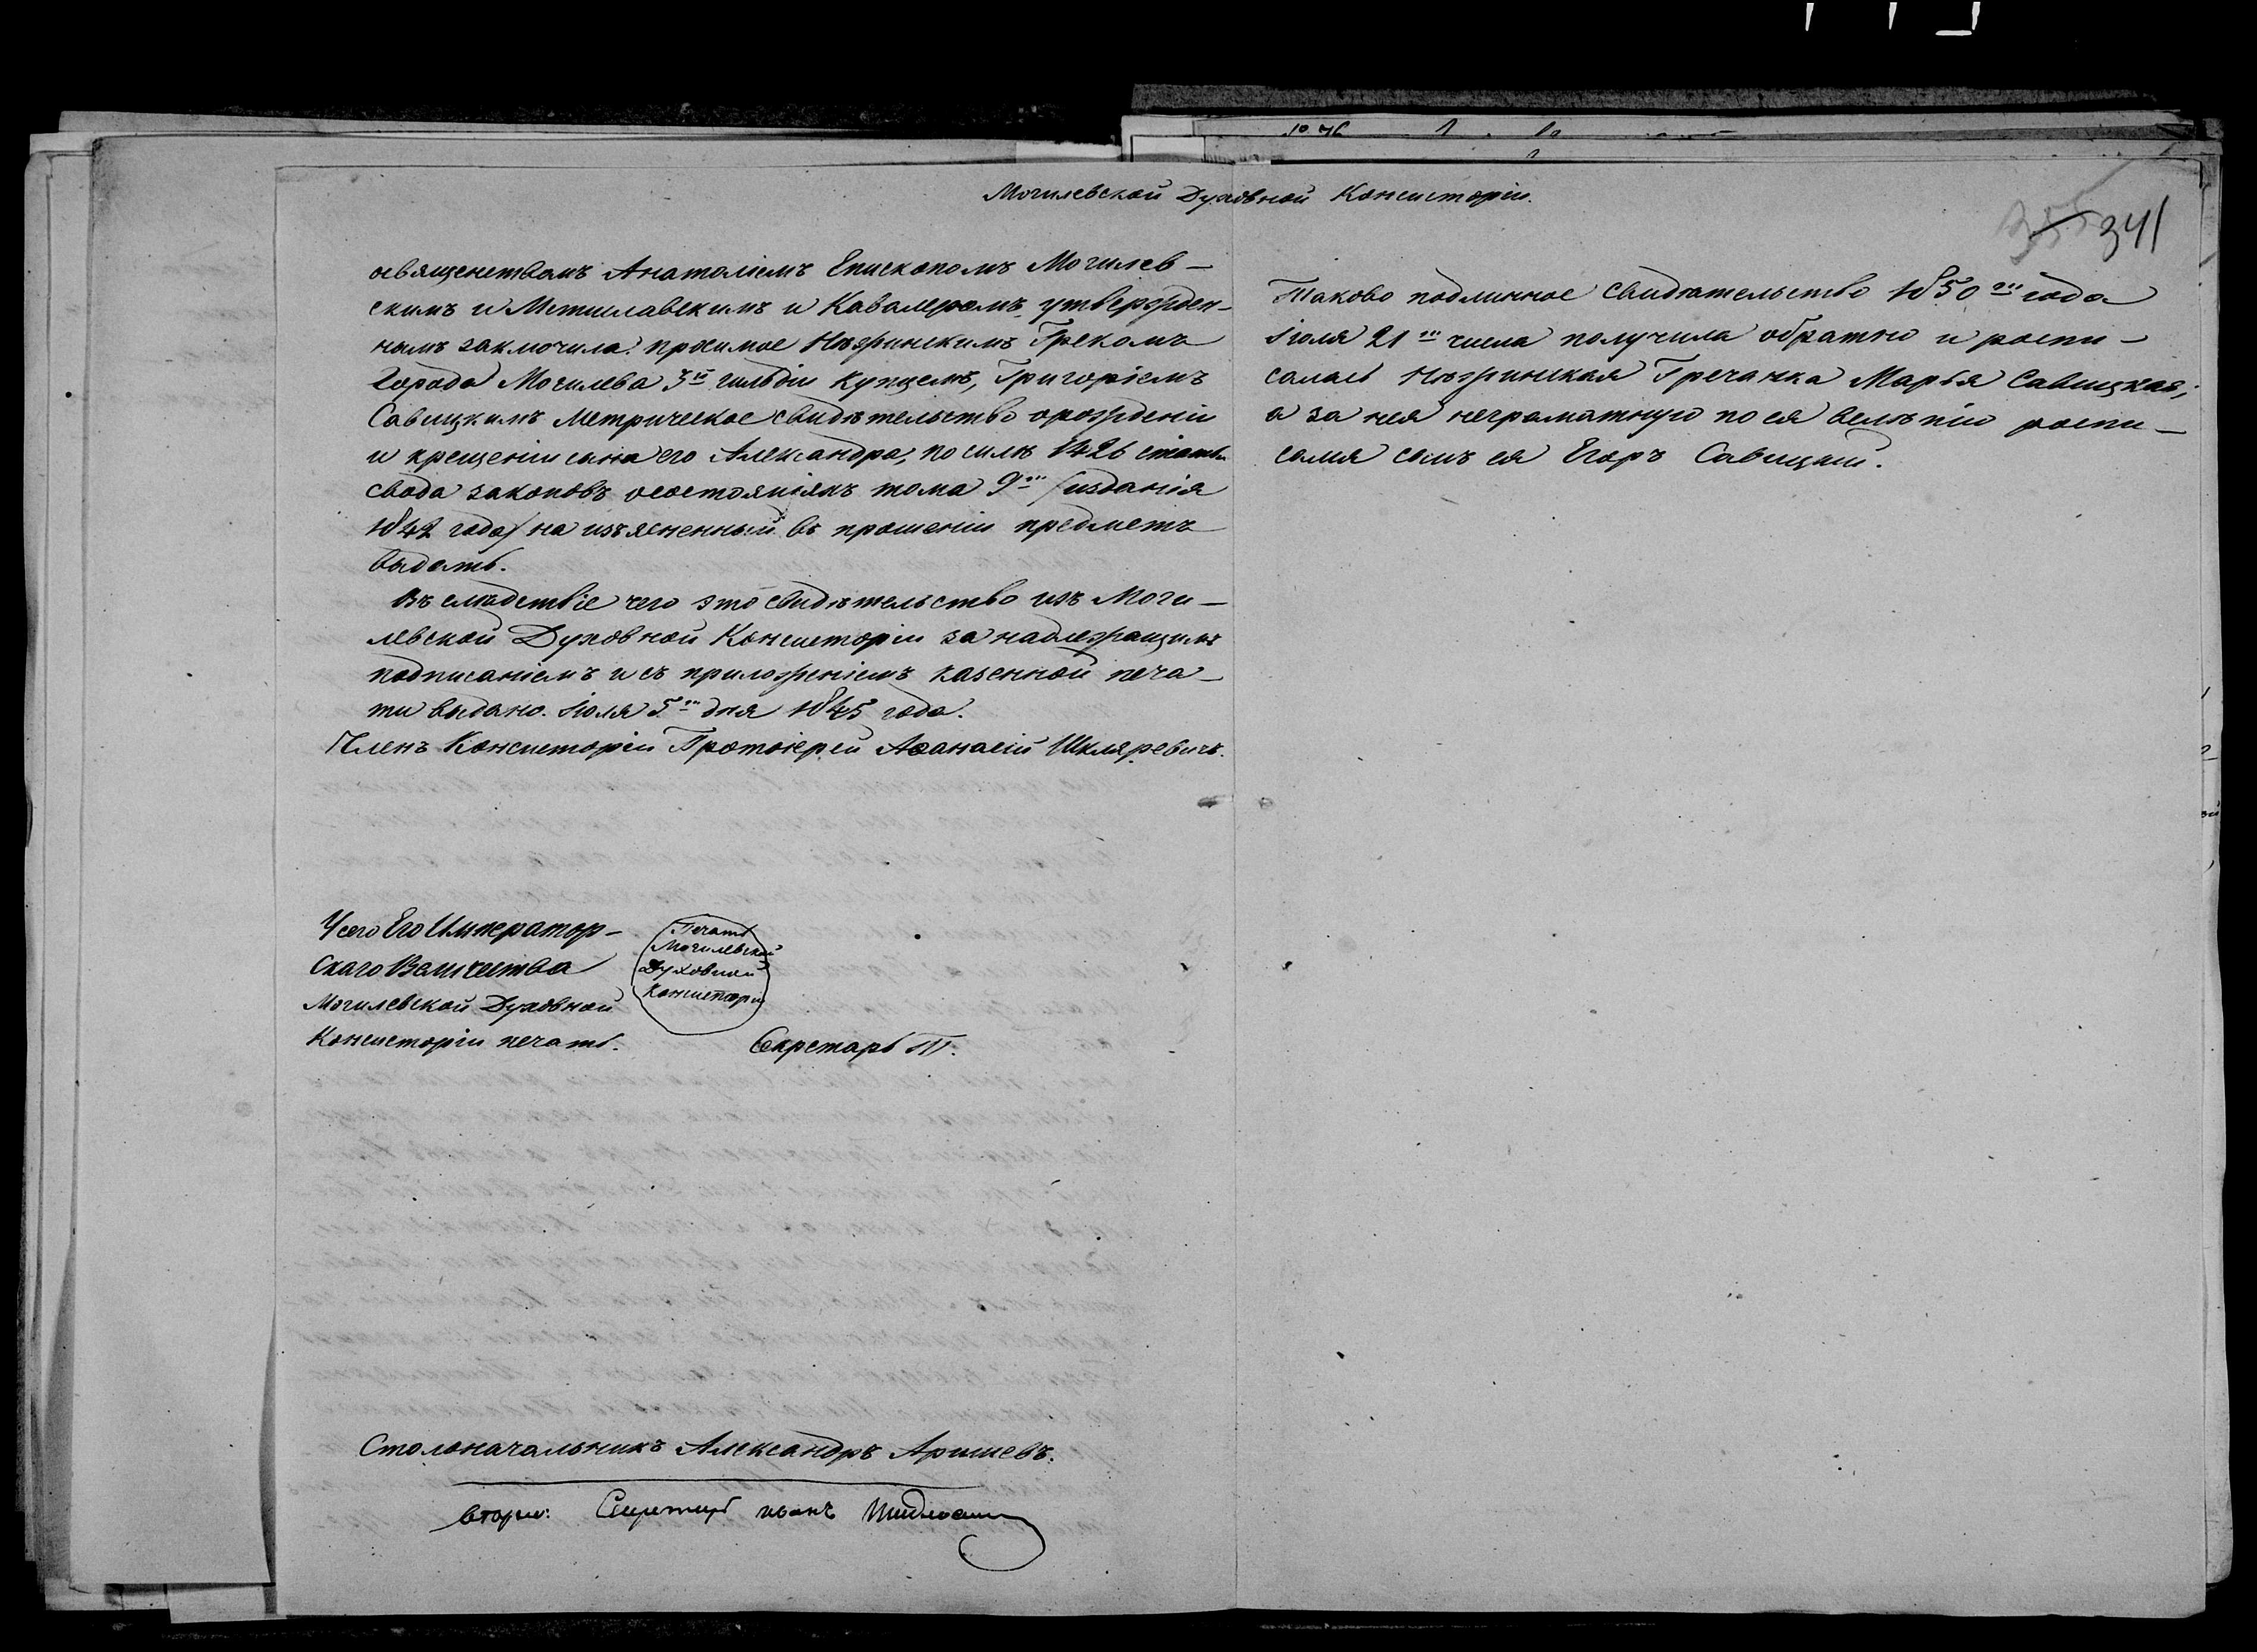 Могилевской Духовной Консисторіи.
341
освященствомъ Анатоліемъ Епископомъ Могилев-
скимъ и Мстиславскимъ и Кавалеромъ утвержден-
нымъ заключила: просимое Нѣжинскимъ Грекомъ
Города Могилева 3й гильдіи купцемъ, Григоріемъ
Савицкимъ Метрическое свидѣтельство о рожденіи
и крещеніи сына его Александра, по силѣ 1426 статьи
свода законовъ о состояніяхъ тома 9го /изданія
1842 года/ на изъясненный въ прошеніи предметъ
выдать.
Въ слѣдствіе чего это свидѣтельство изъ Моги-
левской Духовной Консисторіи за надлежащимъ
подписаніемъ и съ приложеніемъ казенной печа-
ти выдано. Іюля 5го дня 1845 года.
Членъ Консисторіи Протоіерей Аѳанасій Шкляревичъ.
У сего Его Император-
скаго Величества
Могилевской Духовной
Консисторіи печать.
Печать
Могилевской
Духовной
Консисторіи
Секретарь Т.
Столоначальникъ Александръ Аришевъ.
Секретарь Иванъ
Таково подлинное свидѣтельство 1850го года
Іюля 21го числа получила обратно и роспи-
салась Нѣжинская Гречанка Марья Савицкая,
а за нея неграматную по ея велѣнію роспи-
сался сынъ ея Егоръ Савицкій.